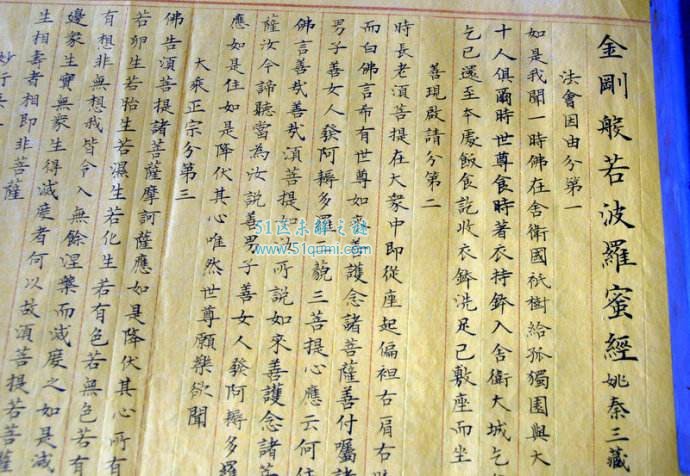 金剛般若波羅蜜經 姚秦三藏
法會因由分第一
如是我聞一時佛在舍衛國祇樹給孤獨園與大
十人俱爾時世尊食時著衣持鉢入舍衛大城乞
乞已還至本處飯食訖收衣鉢洗足已敷座而坐
善現啟請分第二
時長老須菩提在大衆中即從座起偏袒右肩右
而白佛言希有世尊如來善護念諸菩薩善付囑諸
男子善女人發阿耨多羅藐三菩提心應云何住
佛言善哉善哉須菩提如汝所說如來善護念諸
薩汝今諦聽當為汝說善男子善女人發阿耨多羅
應如是住如是降伏其心唯然世尊願樂欲聞
大乘正宗分第三
佛告須菩提諸菩薩摩訶薩應如是降伏其心所有
若卵生若胎生若濕生若化生若有色若無色若有
有想非無想我皆令入無餘涅槃而滅度之如是滅
邊衆生實無衆生得滅度者何以故須菩提若菩薩
生相壽者相即非菩薩
妙行
51区未解之谜
www.51qumi.com